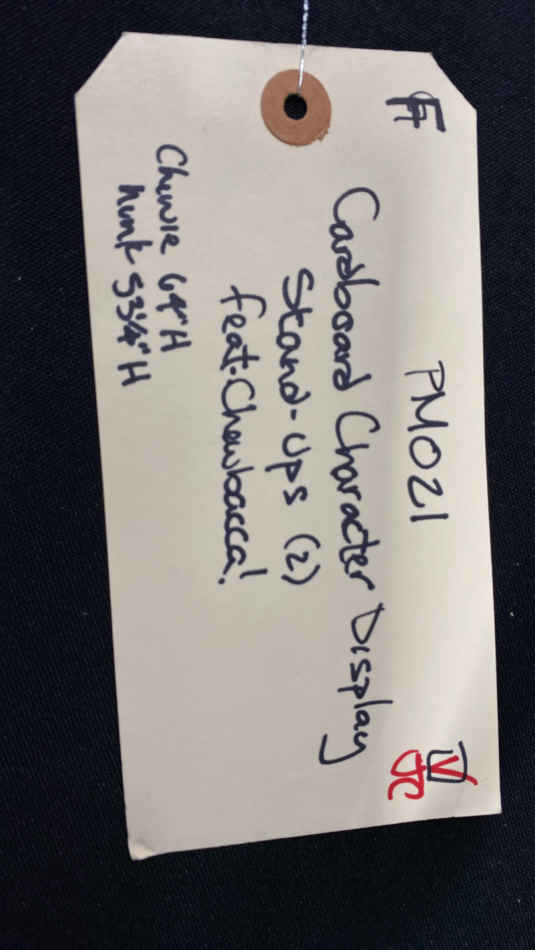 F
PM021
Cardboard Character Display
Stand-Ups (2)
feat. Chewbacca!
Chewie 64"H
hunk 53¼"H
JC